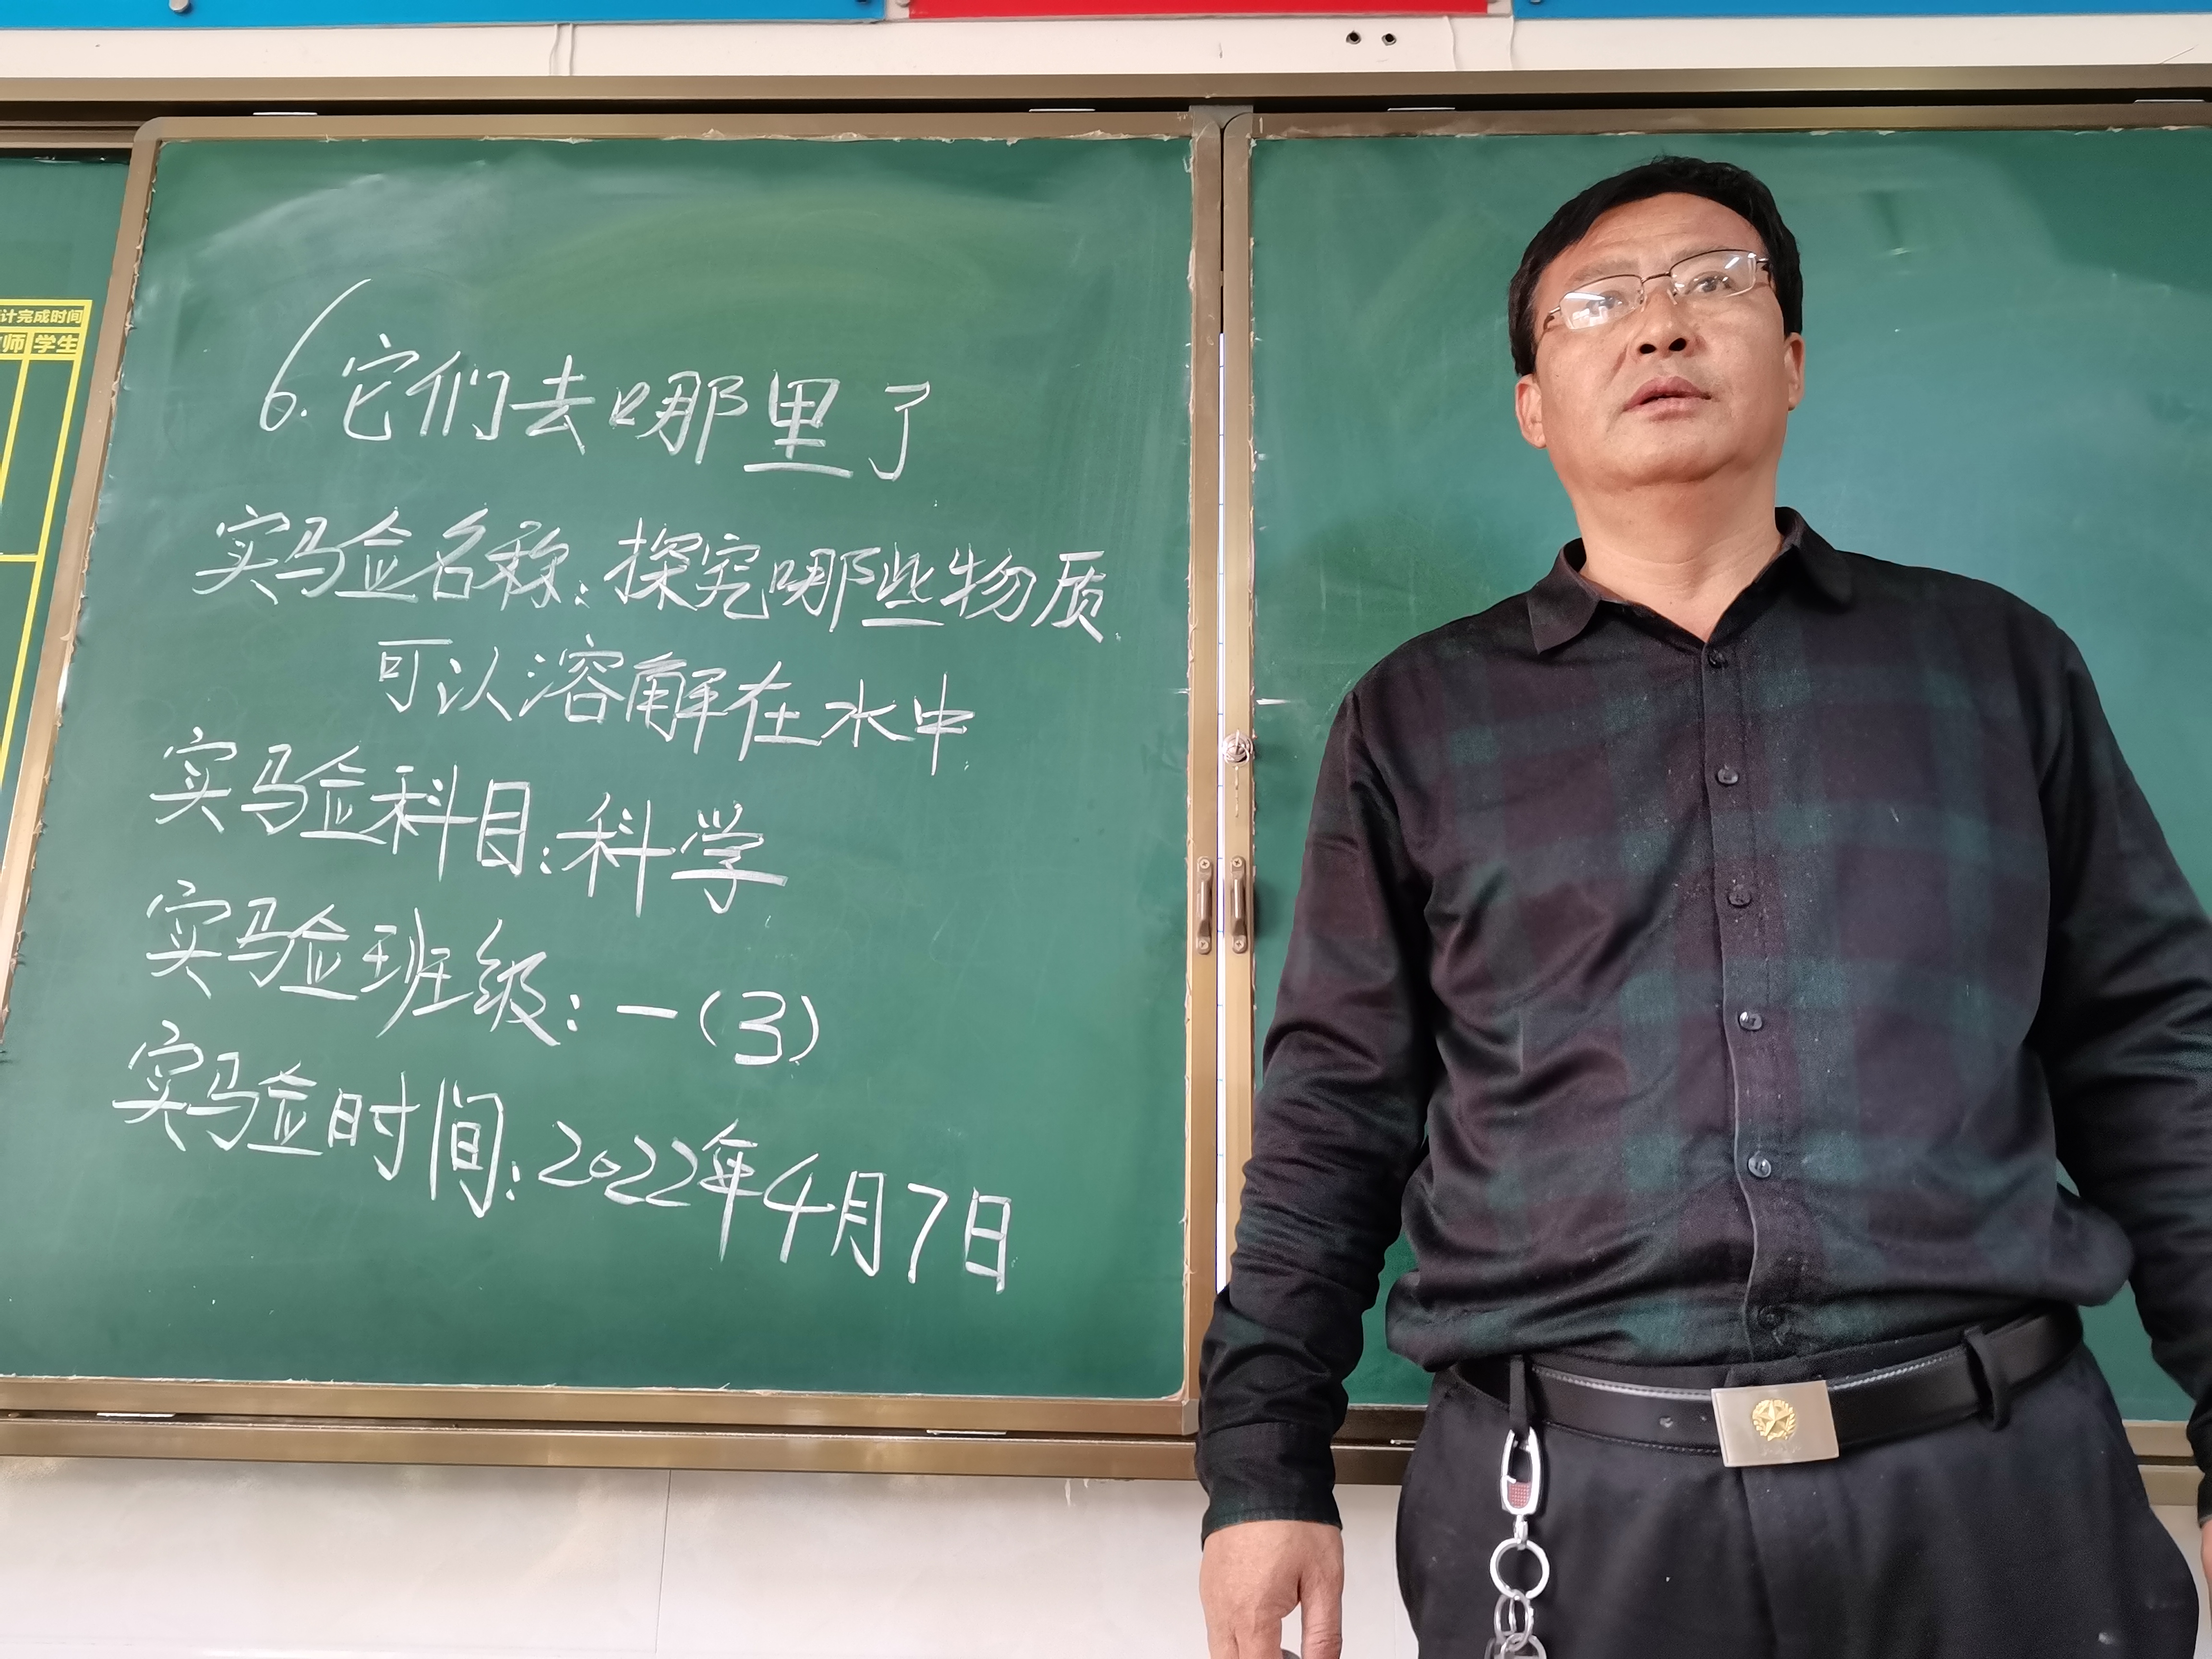 计完成时间
师 学生
6. 它们去哪里了
实验名称:探究哪些物质
可以溶解在水中
实验科目:科学
实验班级:一(3)
实验时间:2022年4月7日